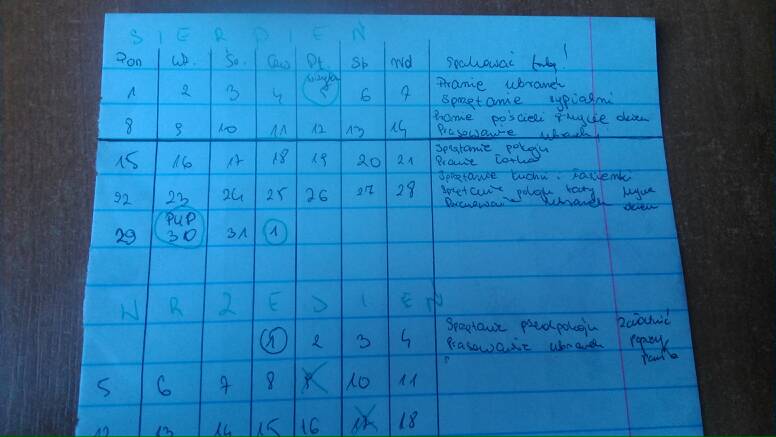 SIERPIEŃ
Pon Wt. Śr. Czw Pt. Sb Nd Spakować torbę!
1 2 3 4 wizyta 5 6 7 Pranie ubranek
Sprzątanie sypialni
8 9 10 11 12 13 14 Pranie pościeli mycie
Prasowanie
15 16 17 18 19 20 21 Sprzątanie pokoju
Pranie
22 23 24 25 26 27 28 Sprzątanie kuchni łazienki
Sprzątanie pokoju taty mycie
Prasowanie ubranek okien
29 PUP 30 31 1
WRZESIEŃ
1 2 3 4 Sprzątanie przedpokoju Załatwić
Prasowanie ubranek papery
5 6 7 8 9 10 11
12 13 14 15 16 17 18